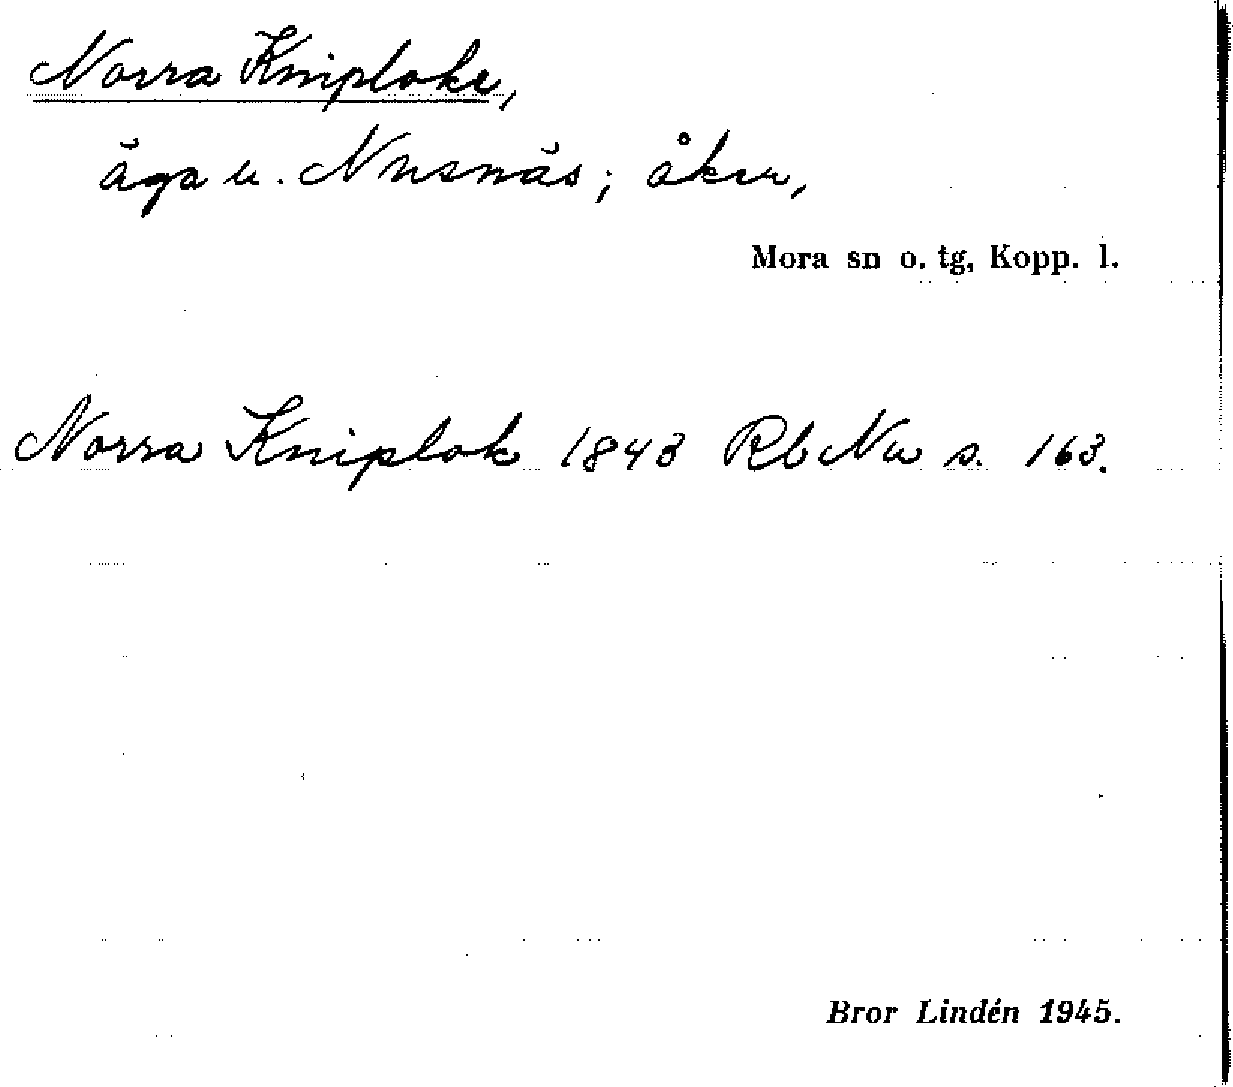 Norra Kniploke,
äga u. Nusnäs; åker,
Mora sn o. tg, Kopp. l.
Norra Kniplok 1843 Rb Nu s. 163.
Bror Lindén 1945.